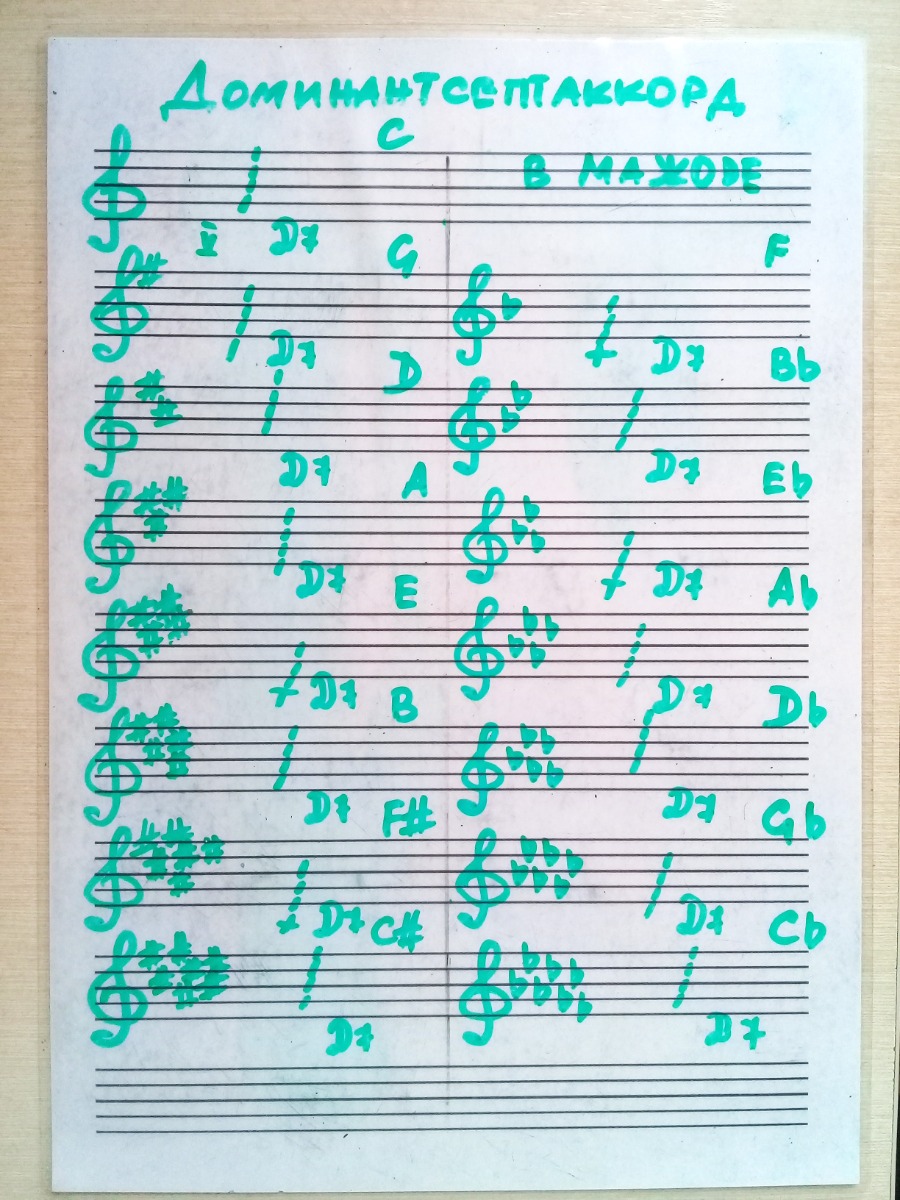 ДОМИНАНТСЕПТАККОРД
C
В МАЖОРЕ
V D7
G F
D7 D7
D Bb
D7 D7
A Eb
D7 D7
E Ab
D7 D7
B Db
D7 D7
F# Gb
D7 D7
C# Cb
D7 D7